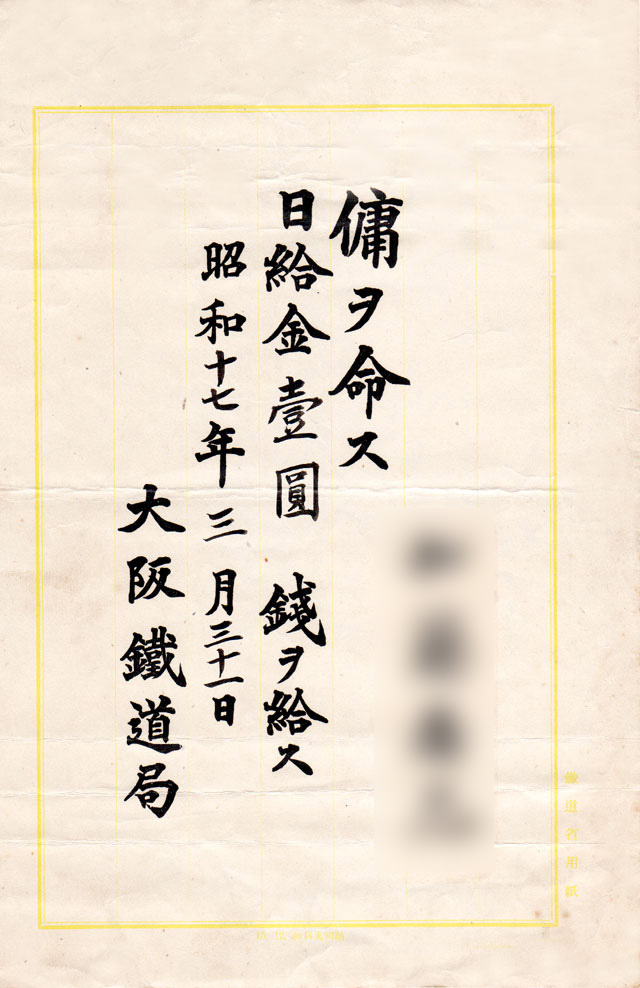 傭ヲ命ス
日給金壹圓 錢ヲ給ス
昭和十七年三月三十一日
大阪鐵道局
鐵道省用紙